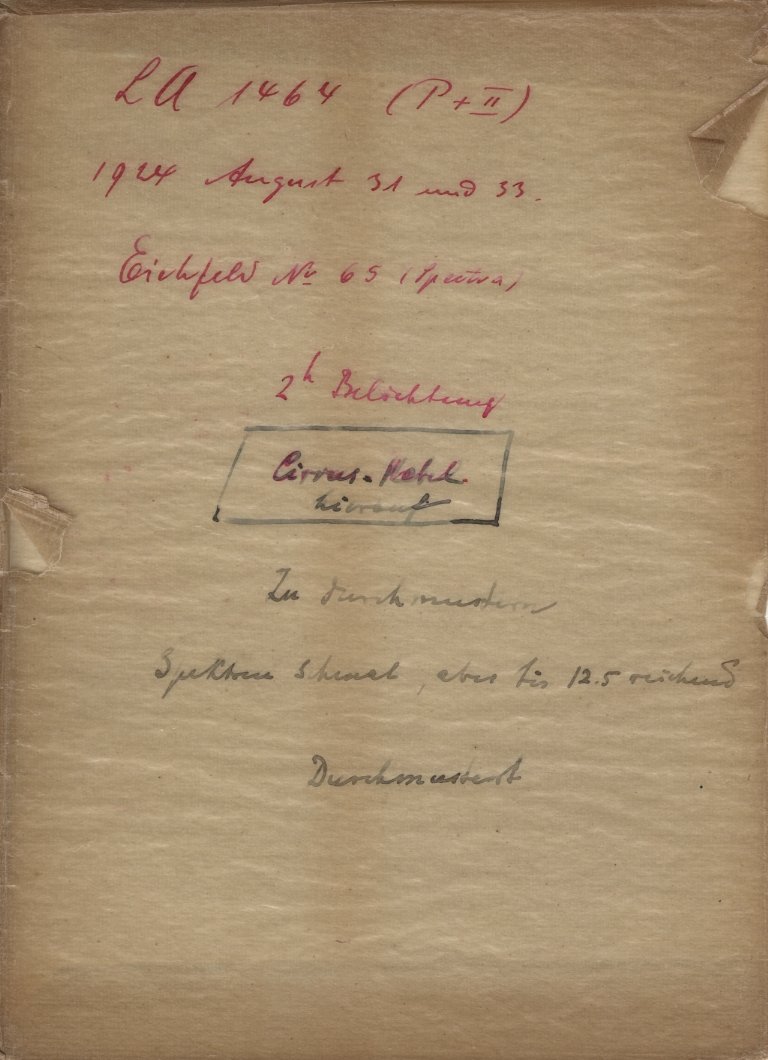 LA 1464 (P + II)
1924 August 31 und 33.
Eichfeld No 65 (Spectra)
2h Belichtung
Cirrus-Nebel
hierauf
Zu durchmustern
Spektren schmal, aber bis 12.5 reichend
Durchmustert